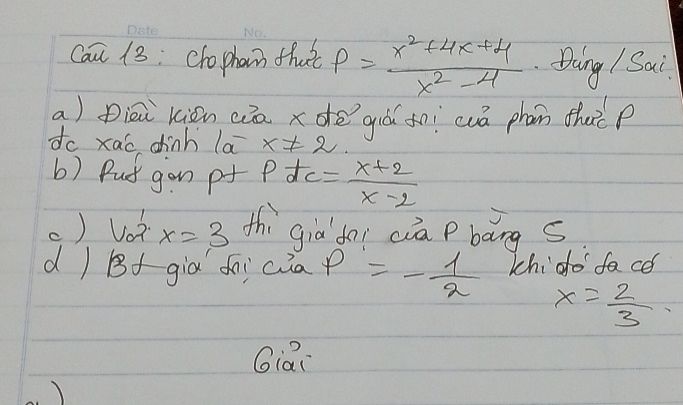 Date No.
Câu 13: Cho phân thức P = (x² + 4x + 4) / (x² - 4). Đúng / Sai.
a) Điều kiện của x để giá trị của phân thức P
đc xác định là x ≠ 2.
b) Rút gọn pt P đc = (x+2) / (x-2)
c) Với x = 3 thì giá trị của P bằng 5
d) Bt giá trị của P = -1/2 khi đó ta có
x = 2/3.
Giải
a)